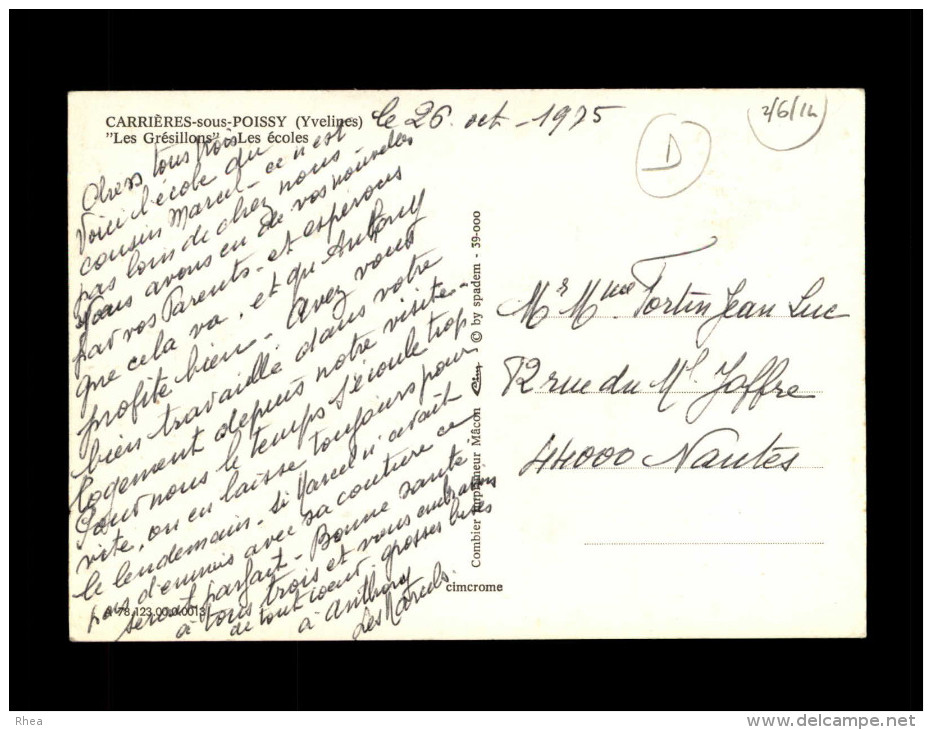 CARRIÈRES-sous-POISSY (Yvelines)
"Les Grésillons" - Les écoles
le 26 oct - 1975
2/6/12
D
Chers tous trois
Voici l'école du
cousin Marcel - ce n'est
pas loin de chez nous -
Nous avons eu de vos nouvelles
par vos Parents - et espérons
que cela va, et qu'Anthony
profite bien - Avez vous
bien travaillé dans votre
logement depuis notre visite -
Pour nous le temps s'écoule trop
vite, on en laisse toujours pour
le lendemain - Si Marcel n'avait
pas d'ennuis avec sa couture ce
serait parfait - Bonne santé
à tous trois et vous embrassons
de tout coeur, grosses bises
à Anthony
Les Marcels.
Mr Mme Fortin Jean Luc
12 rue du Ml Joffre
44000 Nantes
Combier imprimeur Mâcon
© by spadem - 39-000
cimcrome
Rhea
www.delcampe.net